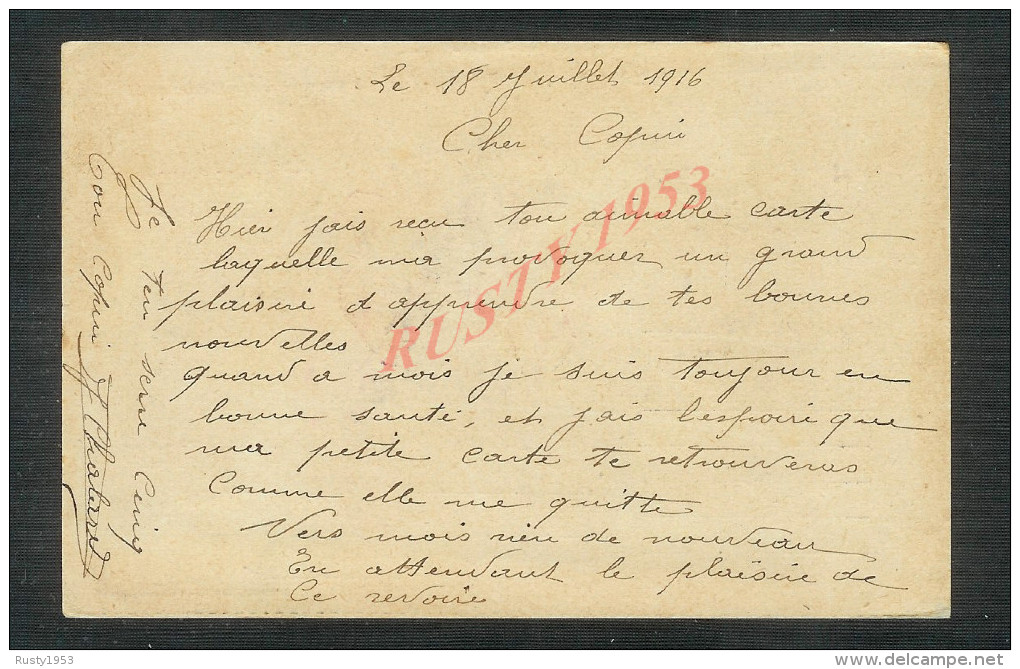 Le 18 Juillet 1916
Cher Copin
Hier jais reçu ton aimable carte
laquelle ma provoquer un grand
plaisire d apprendre de tes bonnes
nouvelles
quand a mois je suis toujour en
bonne santé, et jais l'espoire que
ma petite carte te retrouveras
Comme elle me quitte
Vers mois rien de nouveau
En attendant le plaisire de
ce revoire
Je ten serre Cinq
ton Copin J Chabard
RUSTY1953
Rusty1953
delcampe.net